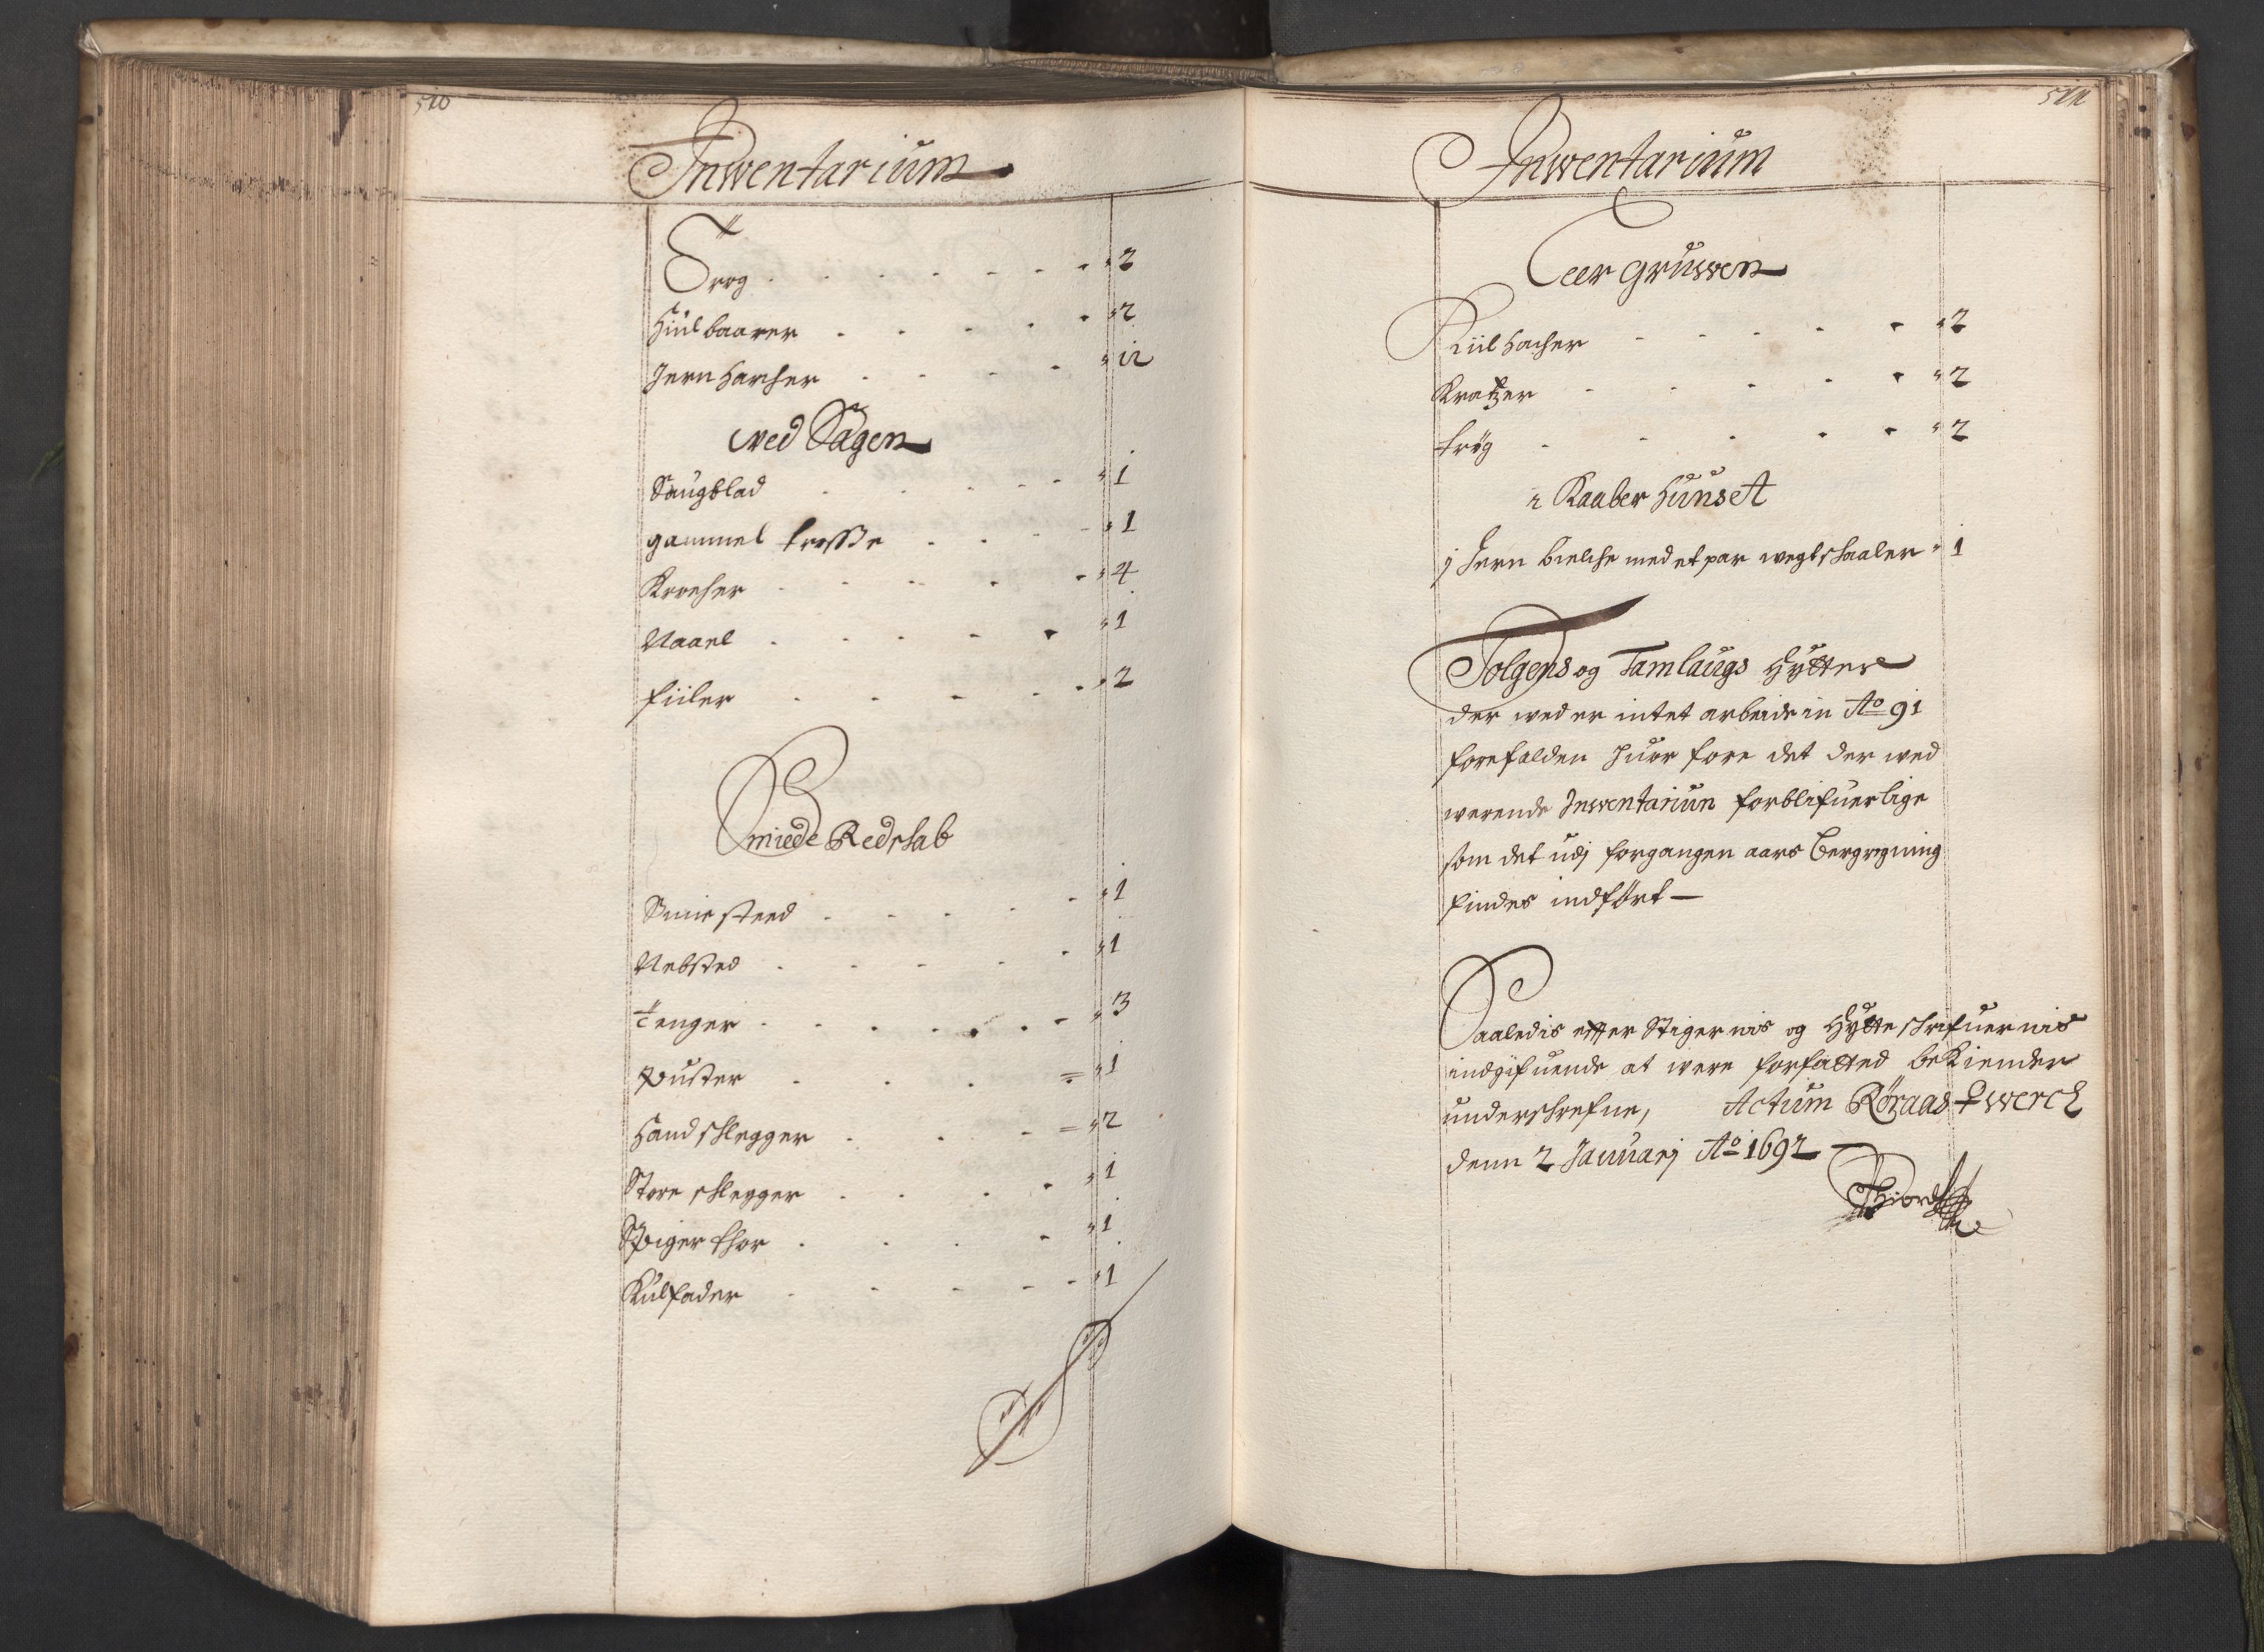 510
Inwentarium
Trög 2
Hiülbaarer 2
Jern Harcher 12
wed Sagen
Saugblad 1
gammel trosse 1
Krocher 4
Naael 1
fiiler 2
Smiede Redskab
Smie steed 1
Nebsted 1
Tenger 3
Puster 1
Hand schlegger 2
Store schlegger 1
Spiger 1
Külfader 1
511
Inwentarium
Leer Gruwen
Kiil Hacher 2
Kratzer 2
trög 2
i Kaaber Huuset
j Jern bielche med et par wegtschaaler 1
Tolgens og Tamlaugs Hÿtter
der wed er intet arbeide in Ao 91
forefalden huor fore det der wed
werende Inwentarium forblifuer lige
som det udj forgangen aars Bergregning
findes indført
Saaledis efter Stigernis og Hÿtteschrifuernis
indgifuende at were forfatted bekiender
underschrefne, Actum Røraas ♀ werch
denn 2 Januarj Ao 1692